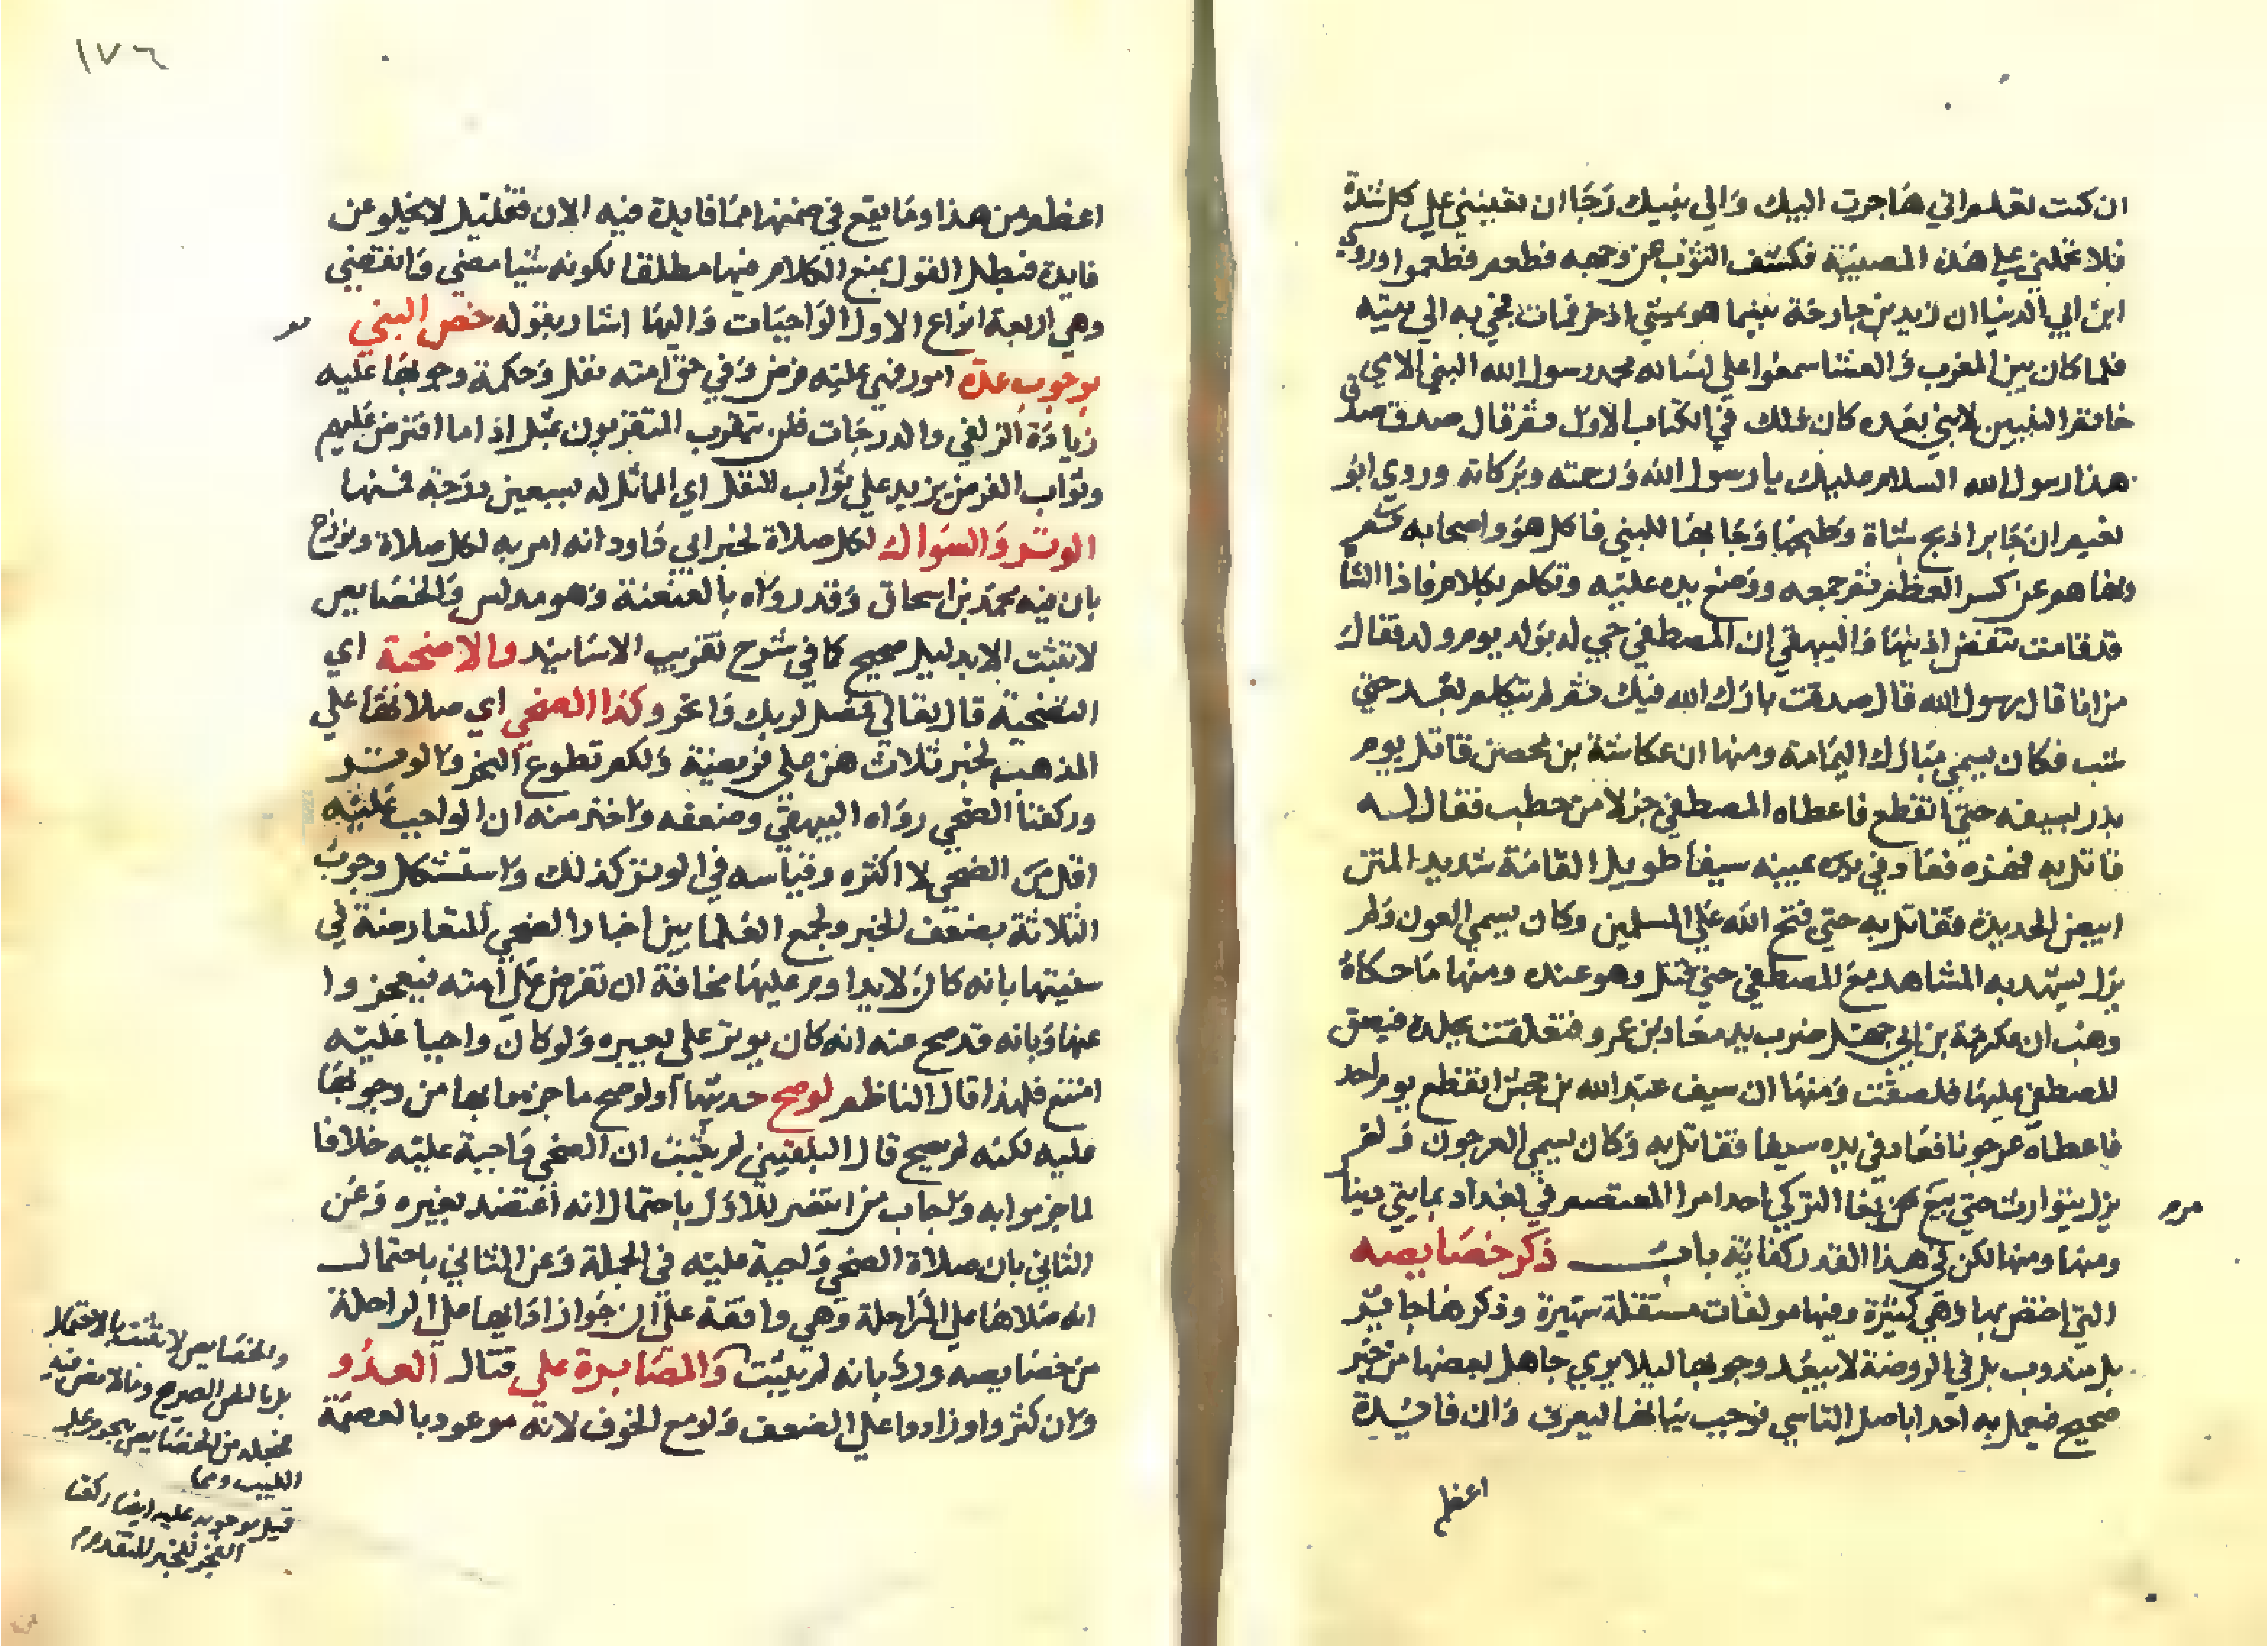 ان كنت تعلم اني هاجرت اليك والي نبيك رجا ان تعينني علي كل شدة
فلا تحملني علي هذه المصيبة فكشف الثوب عن وجهه فطعم فطعموا وروي
ابن ابي الدنيا ان زيد بن خارجة بينما هو يمشي اذ خر فمات فجي به الي بيته
فلما كان بين المغرب والعشا سمعوا علي لسانه محمد رسول الله النبي الامي
خاتم النبيين لا نبي بعده كان ذلك في الكتاب الاول ثم قال صدق صدق
هذا رسول الله السلام عليك يا رسول الله ورحمته وبركاته وروي ابو
نعيم ان جابرا ذبح شاة وطبخها وجا بها للنبي فاكل هو واصحابه ثم
نهاهم عن كسر العظم ثم جمعه ووضع يده عليه وتكلم بكلام فاذا الشا
قد قامت تنفض اذنيها والبيهقي ان المصطفي جي له بولد يوم ولد فقال
من انا قال رسول الله قال صدقت بارك الله فيك ثم لم يتكلم بعد حتي
شب فكان يسمي مبارك اليمامة ومنها ان عكاشة بن محصن قاتل يوم
بدر بسيفه حتي انقطع فاعطاه المصطفي جزلا من حطب فقال له
قاتل به فهزه فعاد في يده عينه سيفا طويل القامة شديد المتن
ابيض الحديدة فقاتل به حتي فتح الله علي المسلمين وكان يسمي العون ولم
يزل يشهد به المشاهد مع المصطفي حتي قتل وهو عنده ومنها ما حكاه
وهب ان عكرمة بن ابي جهل ضرب يد معاذ بن عمرو فتعلقت بجلده فبصق
المصطفي عليها فلصقت ومنها ان سيف عبد الله بن جحش انقطع يوم احد
فاعطاه عرجونا فعاد في يده سيفا فقاتل به وكان يسمي العرجون ولم
يزل يتوارث حتي بيع من بغا التركي احد امرا المعتصم في بغداد بمايتي دينا
ومنها ومنها لكن في هذا القدر كفاية باب ذكر خصايصه
التي اختص بها وهي كثيرة وفيها مولفات مستقلة شهيرة وذكرها جايز
بل مندوب بل في الروضة لا يبعد وجوبها ليلا يري جاهل بعضها من خبر
صحيح فيعمل به اخذا باصل التاسي فوجب بيانها ليعرف واي فايدة
اعظم
١٧٦
اعظم من هذا وما يقع في ضمنها مما فايدة فيه الان فقليل لا يخلو عن
فايدة فبطل القول بمنع الكلام فيها مطلقا لكونه شيا مضي وانقضي
وهي اربعة انواع الاول الواجبات واليها اشار بقوله خص النبي
بوجوب عدة امور فهي عليه فرض وفي حق امته نفل وحكمة وجوبها عليه
زيادة الزلفي والدرجات فلن يتقرب المتقربون بمثل اذا ما افترض عليهم
وثواب الفرض يزيد علي ثواب النفل اي المماثل له بسبعين درجة فمنها
الوتر والسواك لكل صلاة لخبر ابي داود انه امر به لكل صلاة ونوزع
بان فيه محمد بن اسحاق وقد رواه بالعنعنة وهو مدلس والخصايص
لا تثبت الا بدليل صحيح كما في شرح تقريب الاسانيد والاضحية اي
التضحية قال تعالي فصل لربك وانحر وكذا الضحي اي صلاتها علي
المذهب لخبر ثلاث هن علي فريضة ولكم تطوع النحر والوتر
وركعتا الضحي رواه البيهقي وضعفه واخذ منه ان الواجب عليه
اقل من الضحي لا اكثره وقياسه في الوتر كذلك واستشكل وجوب
الثلاثة بضعف الخبر ولجمع العلما بين اخبار الضحي المتعارضة في
سنيتها بانه كان لا يداوم عليها مخافة ان تفرض علي امته فيعجزوا
عنها وبانه قد صح عنه انه كان يوتر علي بعيره ولو كان واجبا عليه
امتنع فلهذا قال الناظم لو صح حديثها او لو صح ما جزموا بها من وجوبها
عليه لكنه لم يصح قال البلقيني لم يثبت ان الضحي واجبة عليه خلافا
لما جزموا به واجاب من انتصر للاول باحتمال انه اعتضد بغيره وعن
الثاني بان صلاة الضحي واجبة عليه في الجملة وعن الثاني باحتمال
انه صلاها علي الراحلة وهي واقفة علي ان جواز ادايها علي الراحلة
من خصايصه ورد بانه لم يثبت والمصابرة علي قتال العدو
وان كثروا وزادوا علي الضعف ولو مع الخوف لانه موعود بالعصمة
والخصايص لا تثبت بالاحتمال
بل بالنص الصريح
الطبيب
قيل بوجوبه عليه ايضا ركعتا
الفجر للخبر المتقدم